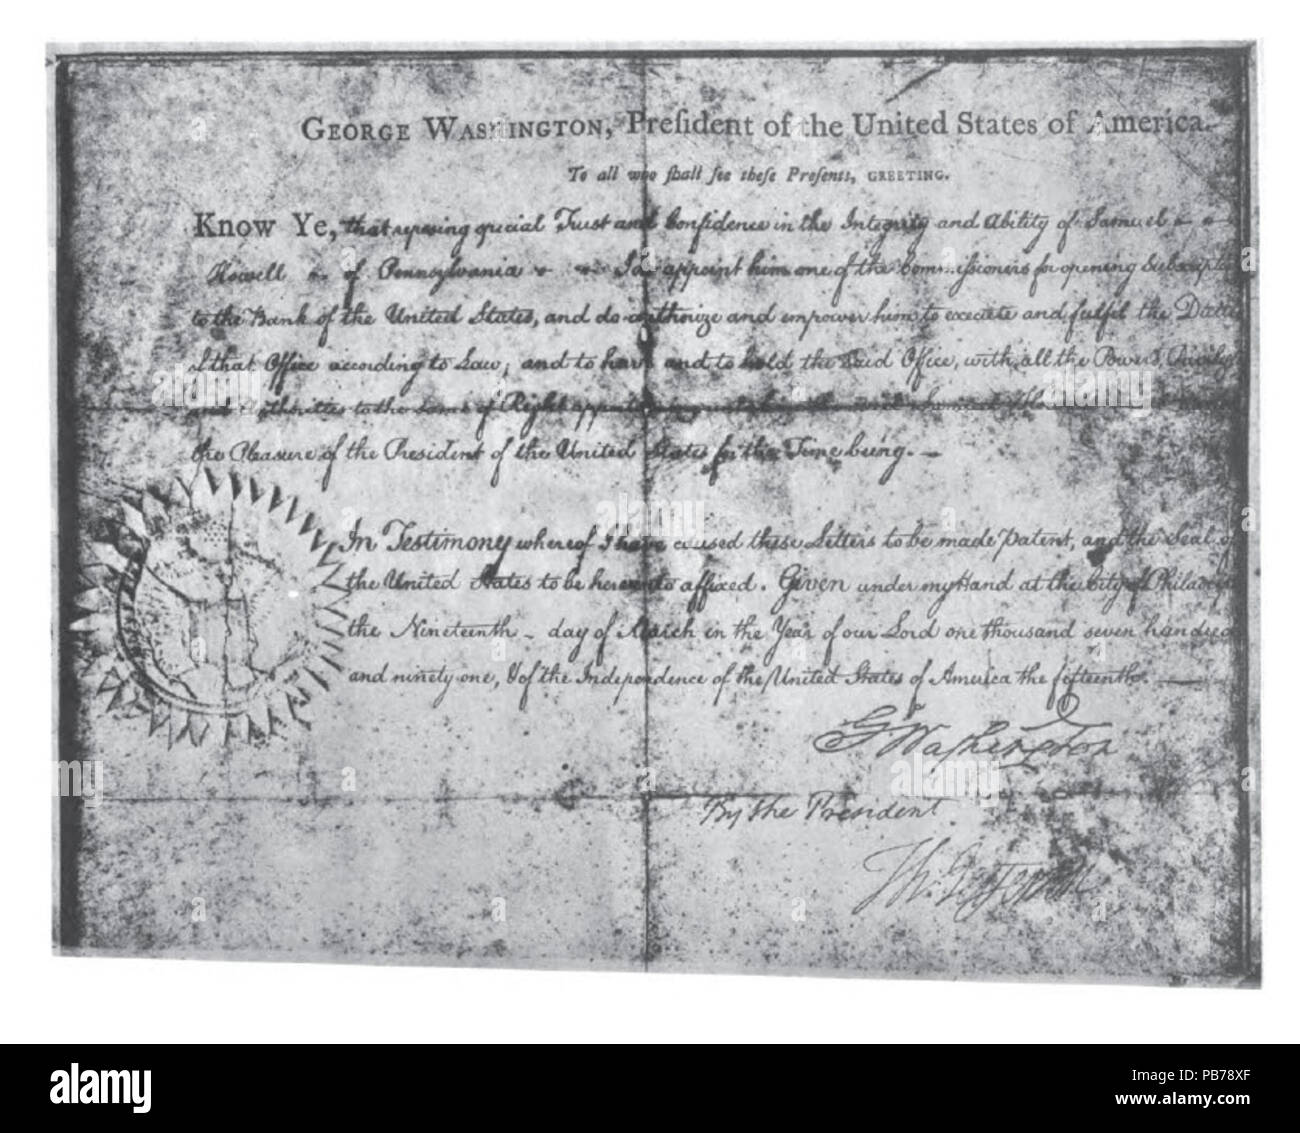 GEORGE WASHINGTON, Preſident of the United States of America.
To all who ſhall ſee theſe Preſents, GREETING.
Know Ye, that reposing special Trust and Confidence in the Integrity and Ability of Samuel
Howell of Pennsylvania I do appoint him one of the Commissioners for opening Subscript
to the Bank of the United States, and do authorize and empower him to execute and fulfil the Duties
of that Office according to Law; and to have and to hold the said Office, with all the Powers, Privileg
and Authorities to the same of Right
the Pleasure of the President of the United States for the Time being.
In Testimony whereof I have caused these Letters to be made Patent, and the Seal of
the United States to be hereunto affixed. Given under my Hand at the City of Philad
the Nineteenth day of March in the Year of our Lord one thousand seven hundred
and ninety one, & of the Independence of the United States of America the fifteenth.
Go Washington
By the President
Th: Jefferson
alamy
Image ID: PB78XF
www.alamy.com